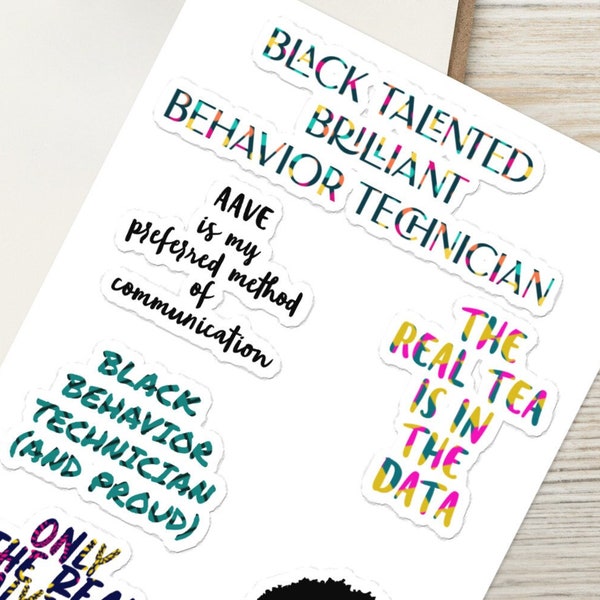 BLACK TALENTED
BRILLIANT
BEHAVIOR TECHNICIAN
AAVE
is my
preferred method
of
communication
THE
REAL TEA
IS IN
THE
DATA
BLACK
BEHAVIOR
TECHNICIAN
(AND PROUD)
ONLY
THE REAL